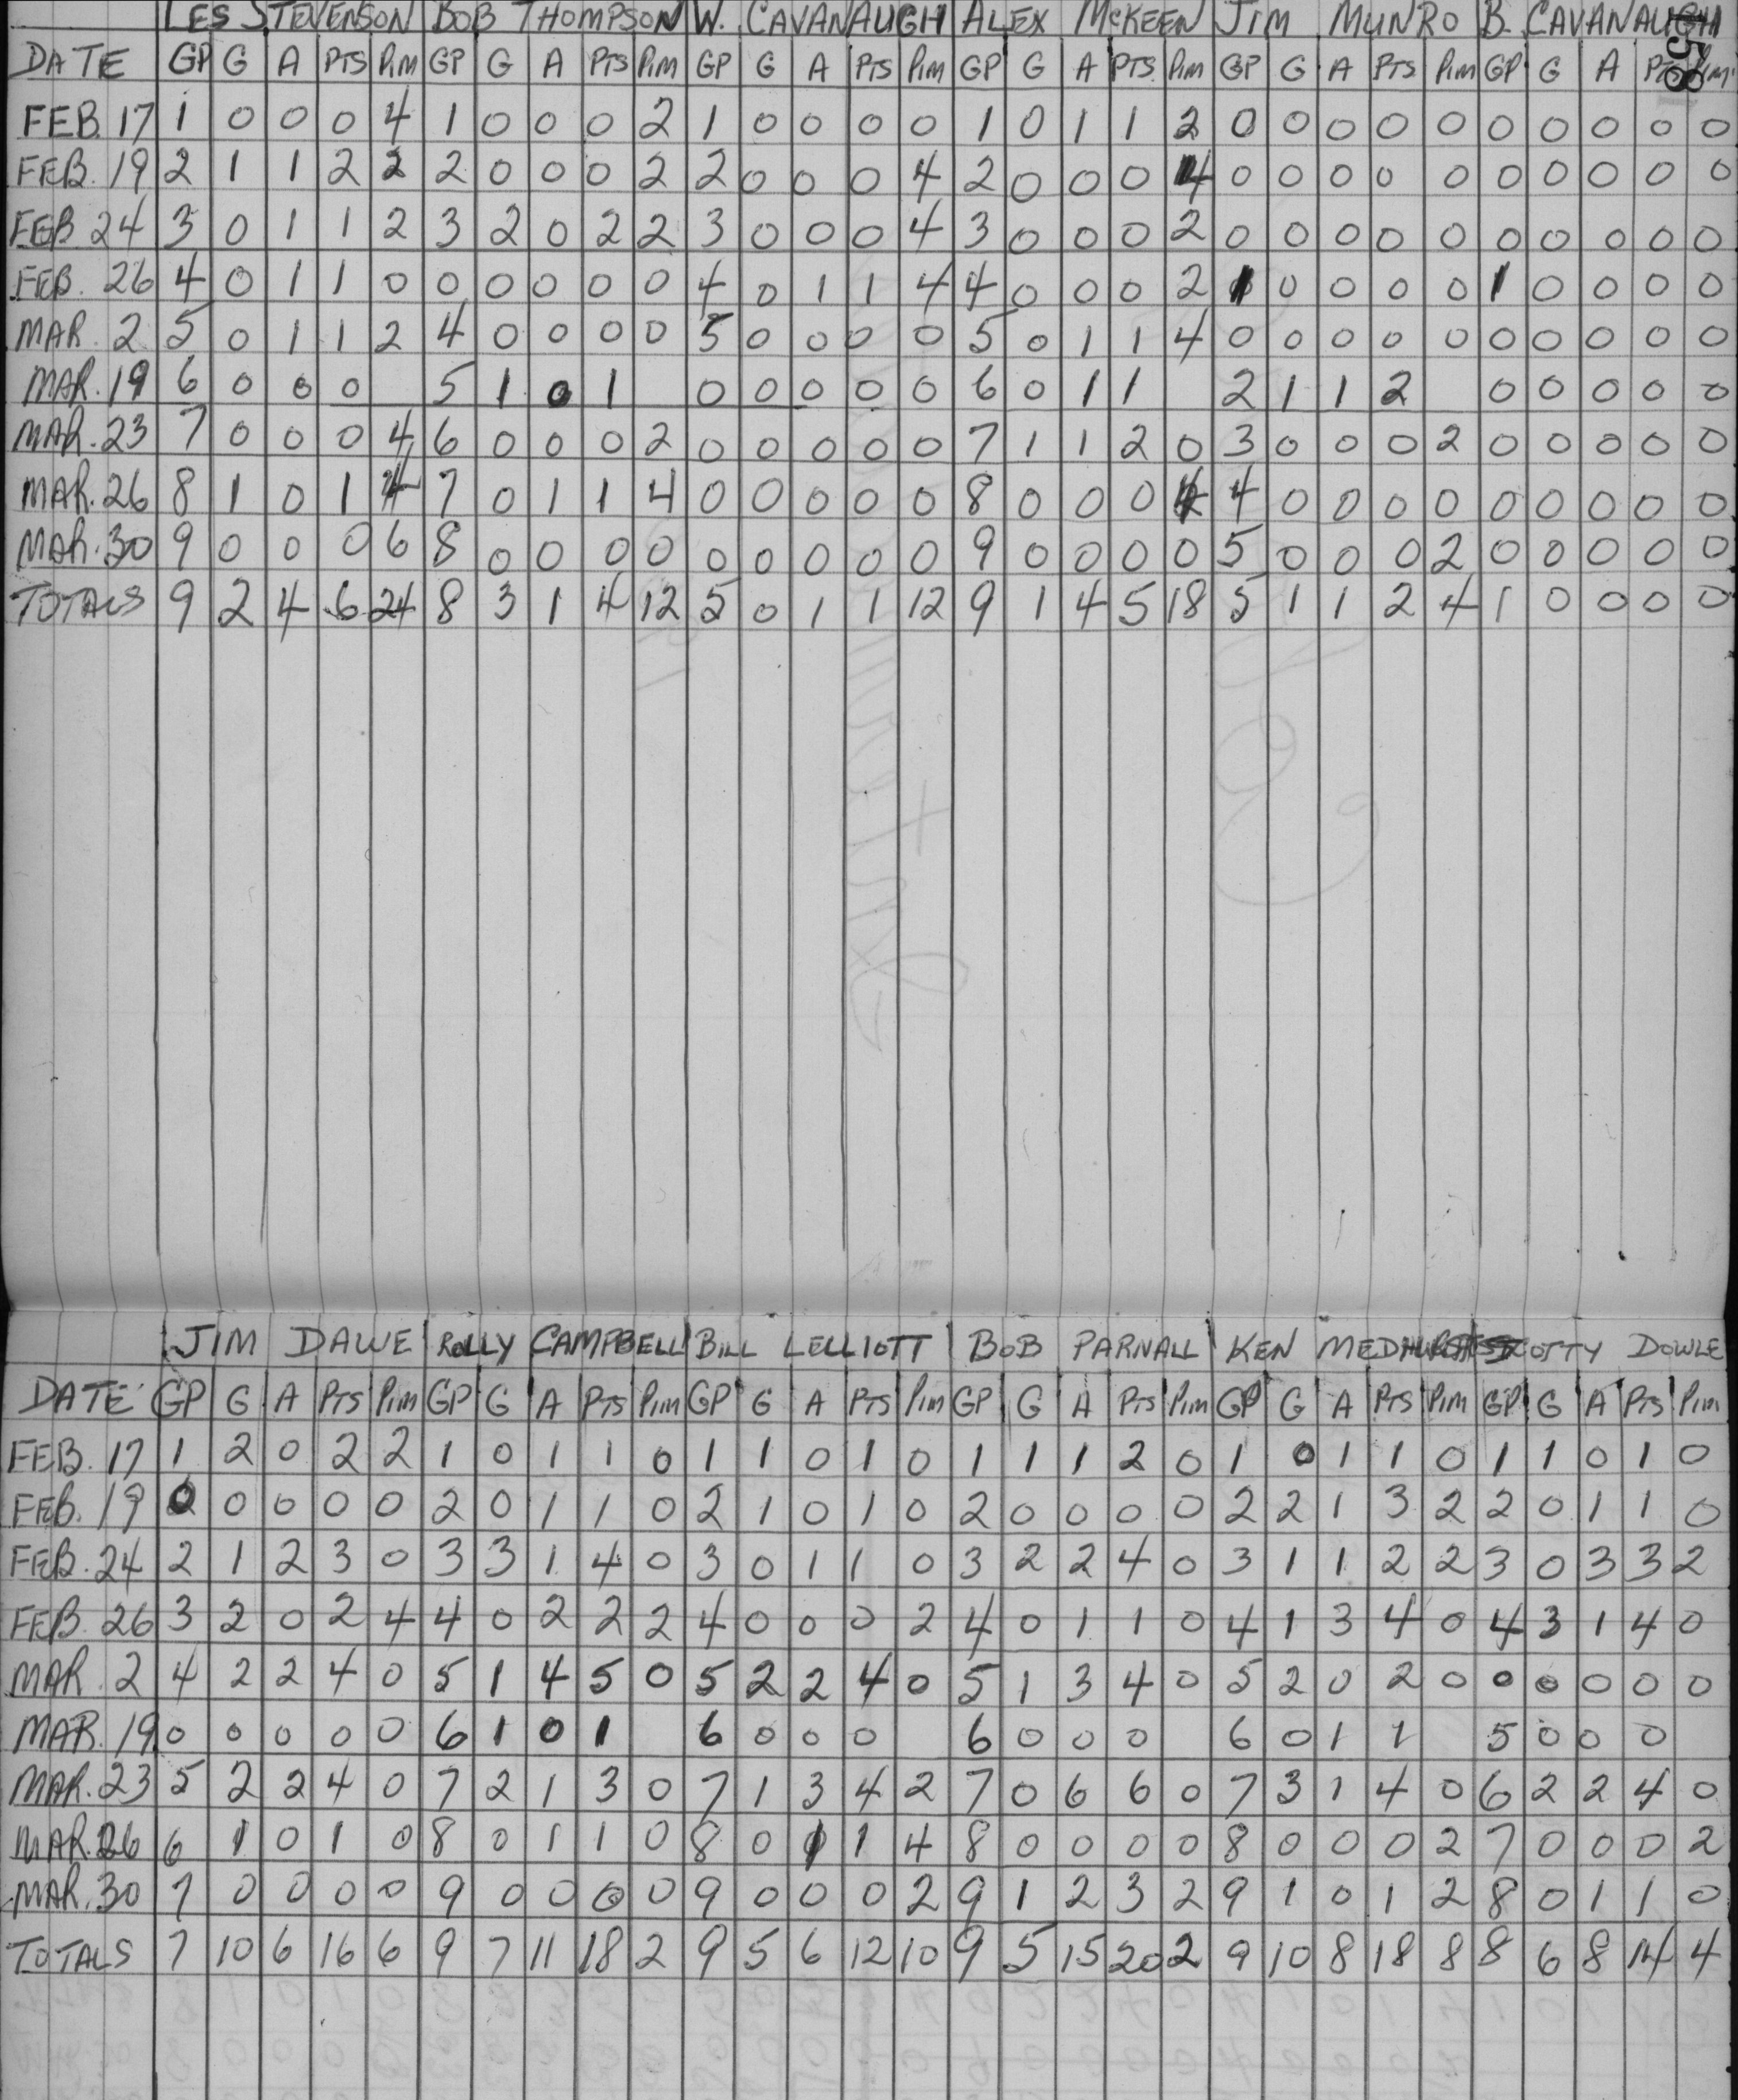 LES STEVENSON BOB THOMPSON W. CAVANAUGH ALEX McKEEN JIM MUNRO B. CAVANAUGH
558
DATE GP G A PTS PiM GP G A PTS PiM GP G A PTS PiM GP G A PTS PiM GP G A PTS PiM GP G A PTS PiM
FEB. 17 1 0 0 0 4 1 0 0 0 2 1 0 0 0 0 1 0 1 1 2 0 0 0 0 0 0 0 0 0 0
FEB. 19 2 1 1 2 2 2 0 0 0 2 2 0 0 0 4 2 0 0 0 4 0 0 0 0 0 0 0 0 0 0
FEB 24 3 0 1 1 2 3 2 0 2 2 3 0 0 0 4 3 0 0 0 2 0 0 0 0 0 0 0 0 0 0
FEB. 26 4 0 1 1 0 0 0 0 0 0 4 0 1 1 4 4 0 0 0 2 1 0 0 0 0 1 0 0 0 0
MAR. 2 5 0 1 1 2 4 0 0 0 0 5 0 0 0 0 5 0 1 1 4 0 0 0 0 0 0 0 0 0 0
MAR. 19 6 0 0 0 5 1 0 1 0 0 0 0 0 6 0 1 1 2 1 1 2 0 0 0 0 0
MAR. 23 7 0 0 0 4 6 0 0 0 2 0 0 0 0 0 7 1 1 2 0 3 0 0 0 2 0 0 0 0 0
MAR. 26 8 1 0 1 4 7 0 1 1 4 0 0 0 0 0 8 0 0 0 4 4 0 0 0 0 0 0 0 0 0
MAR. 30 9 0 0 0 6 8 0 0 0 0 0 0 0 0 0 9 0 0 0 0 5 0 0 0 2 0 0 0 0 0
TOTALS 9 2 4 6 24 8 3 1 4 12 5 0 1 1 12 9 1 4 5 18 5 1 1 2 4 1 0 0 0 0
JIM DAWE ROLLY CAMPBELL BILL LELLIOTT BOB PARNALL KEN MEDHURST SCOTTY DOWLE
DATE GP G A PTS PiM GP G A PTS PiM GP G A PTS PiM GP G A PTS PiM GP G A PTS PiM GP G A PTS PiM
FEB. 17 1 2 0 2 2 1 0 1 1 0 1 1 0 1 0 1 1 1 2 0 1 0 1 1 0 1 1 0 1 0
FEB. 19 0 0 0 0 0 2 0 1 1 0 2 1 0 1 0 2 0 0 0 0 2 2 1 3 2 2 0 1 1 0
FEB. 24 2 1 2 3 0 3 3 1 4 0 3 0 1 1 0 3 2 2 4 0 3 1 1 2 2 3 0 3 3 2
FEB. 26 3 2 0 2 4 4 0 2 2 2 4 0 0 0 2 4 0 1 1 0 4 1 3 4 0 4 3 1 4 0
MAR. 2 4 2 2 4 0 5 1 4 5 0 5 2 2 4 0 5 1 3 4 0 5 2 0 2 0 0 0 0 0 0
MAR. 19 0 0 0 0 0 6 1 0 1 6 0 0 0 6 0 0 0 6 0 1 1 5 0 0 0
MAR. 23 5 2 2 4 0 7 2 1 3 0 7 1 3 4 2 7 0 6 6 0 7 3 1 4 0 6 2 2 4 0
MAR. 26 6 1 0 1 0 8 0 1 1 0 8 0 1 1 4 8 0 0 0 0 8 0 0 0 2 7 0 0 0 2
MAR. 30 7 0 0 0 0 9 0 0 0 0 9 0 0 0 2 9 1 2 3 2 9 1 0 1 2 8 0 1 1 0
TOTALS 7 10 6 16 6 9 7 11 18 2 9 5 6 12 10 9 5 15 20 2 9 10 8 18 8 8 6 8 14 4